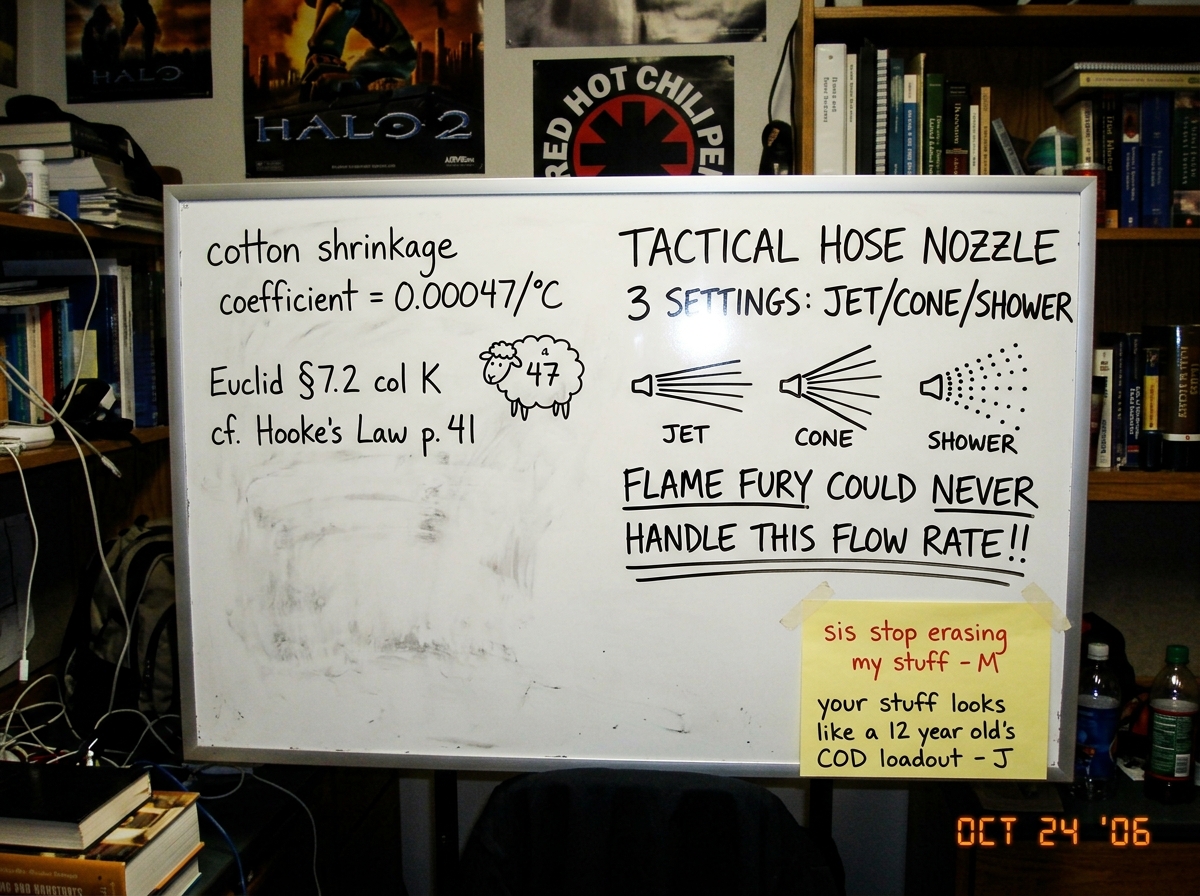 HALO
HALO 2
ACTIVISION
RED HOT CHILI PE
cotton shrinkage
coefficient = 0.00047/°C
Euclid §7.2 col K
cf. Hooke's Law p. 41
4
47
TACTICAL HOSE NOZZLE
3 SETTINGS: JET/CONE/SHOWER
JET CONE SHOWER
FLAME FURY COULD NEVER
HANDLE THIS FLOW RATE!!
sis stop erasing
my stuff - M
your stuff looks
like a 12 year old's
COD loadout - J
OCT 24 '06